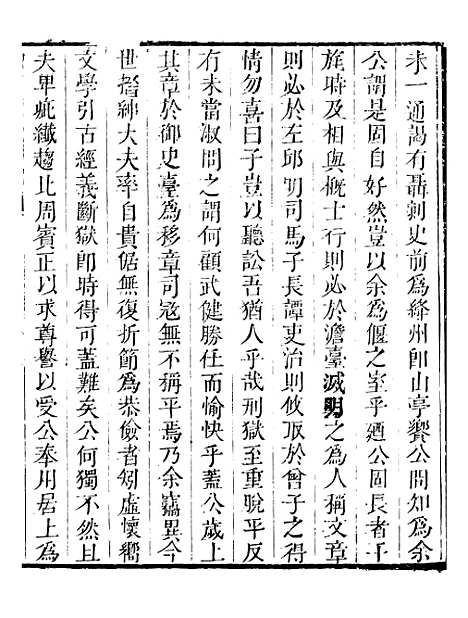 未一通謁有聶刺史前爲絳州卽山亭饗公問知爲余
公謂是固自好然豈以余爲偃之室乎廼公固長者于
旄時及相與㮣士行則必於澹臺滅明之爲人稱文章
則必於左邱明司馬子長譚吏治則攸取於曾子之得
情勿喜曰子豈以聽訟吾猶人乎哉刑獄至重晥平反
有未當淑問之謂何顧武健勝任而愉快乎蓋公歲上
其章於御史臺爲移章司𡨥無不稱平焉乃余竊異今
世搢紳大夫率自貴倨無復折節爲恭儉者矧虛懷嚮
文學引古經義斷獄卽時得可蓋難矣公何獨不然且
夫卑疵纖趨比周賓正以求尊譽以受公奉用居上爲